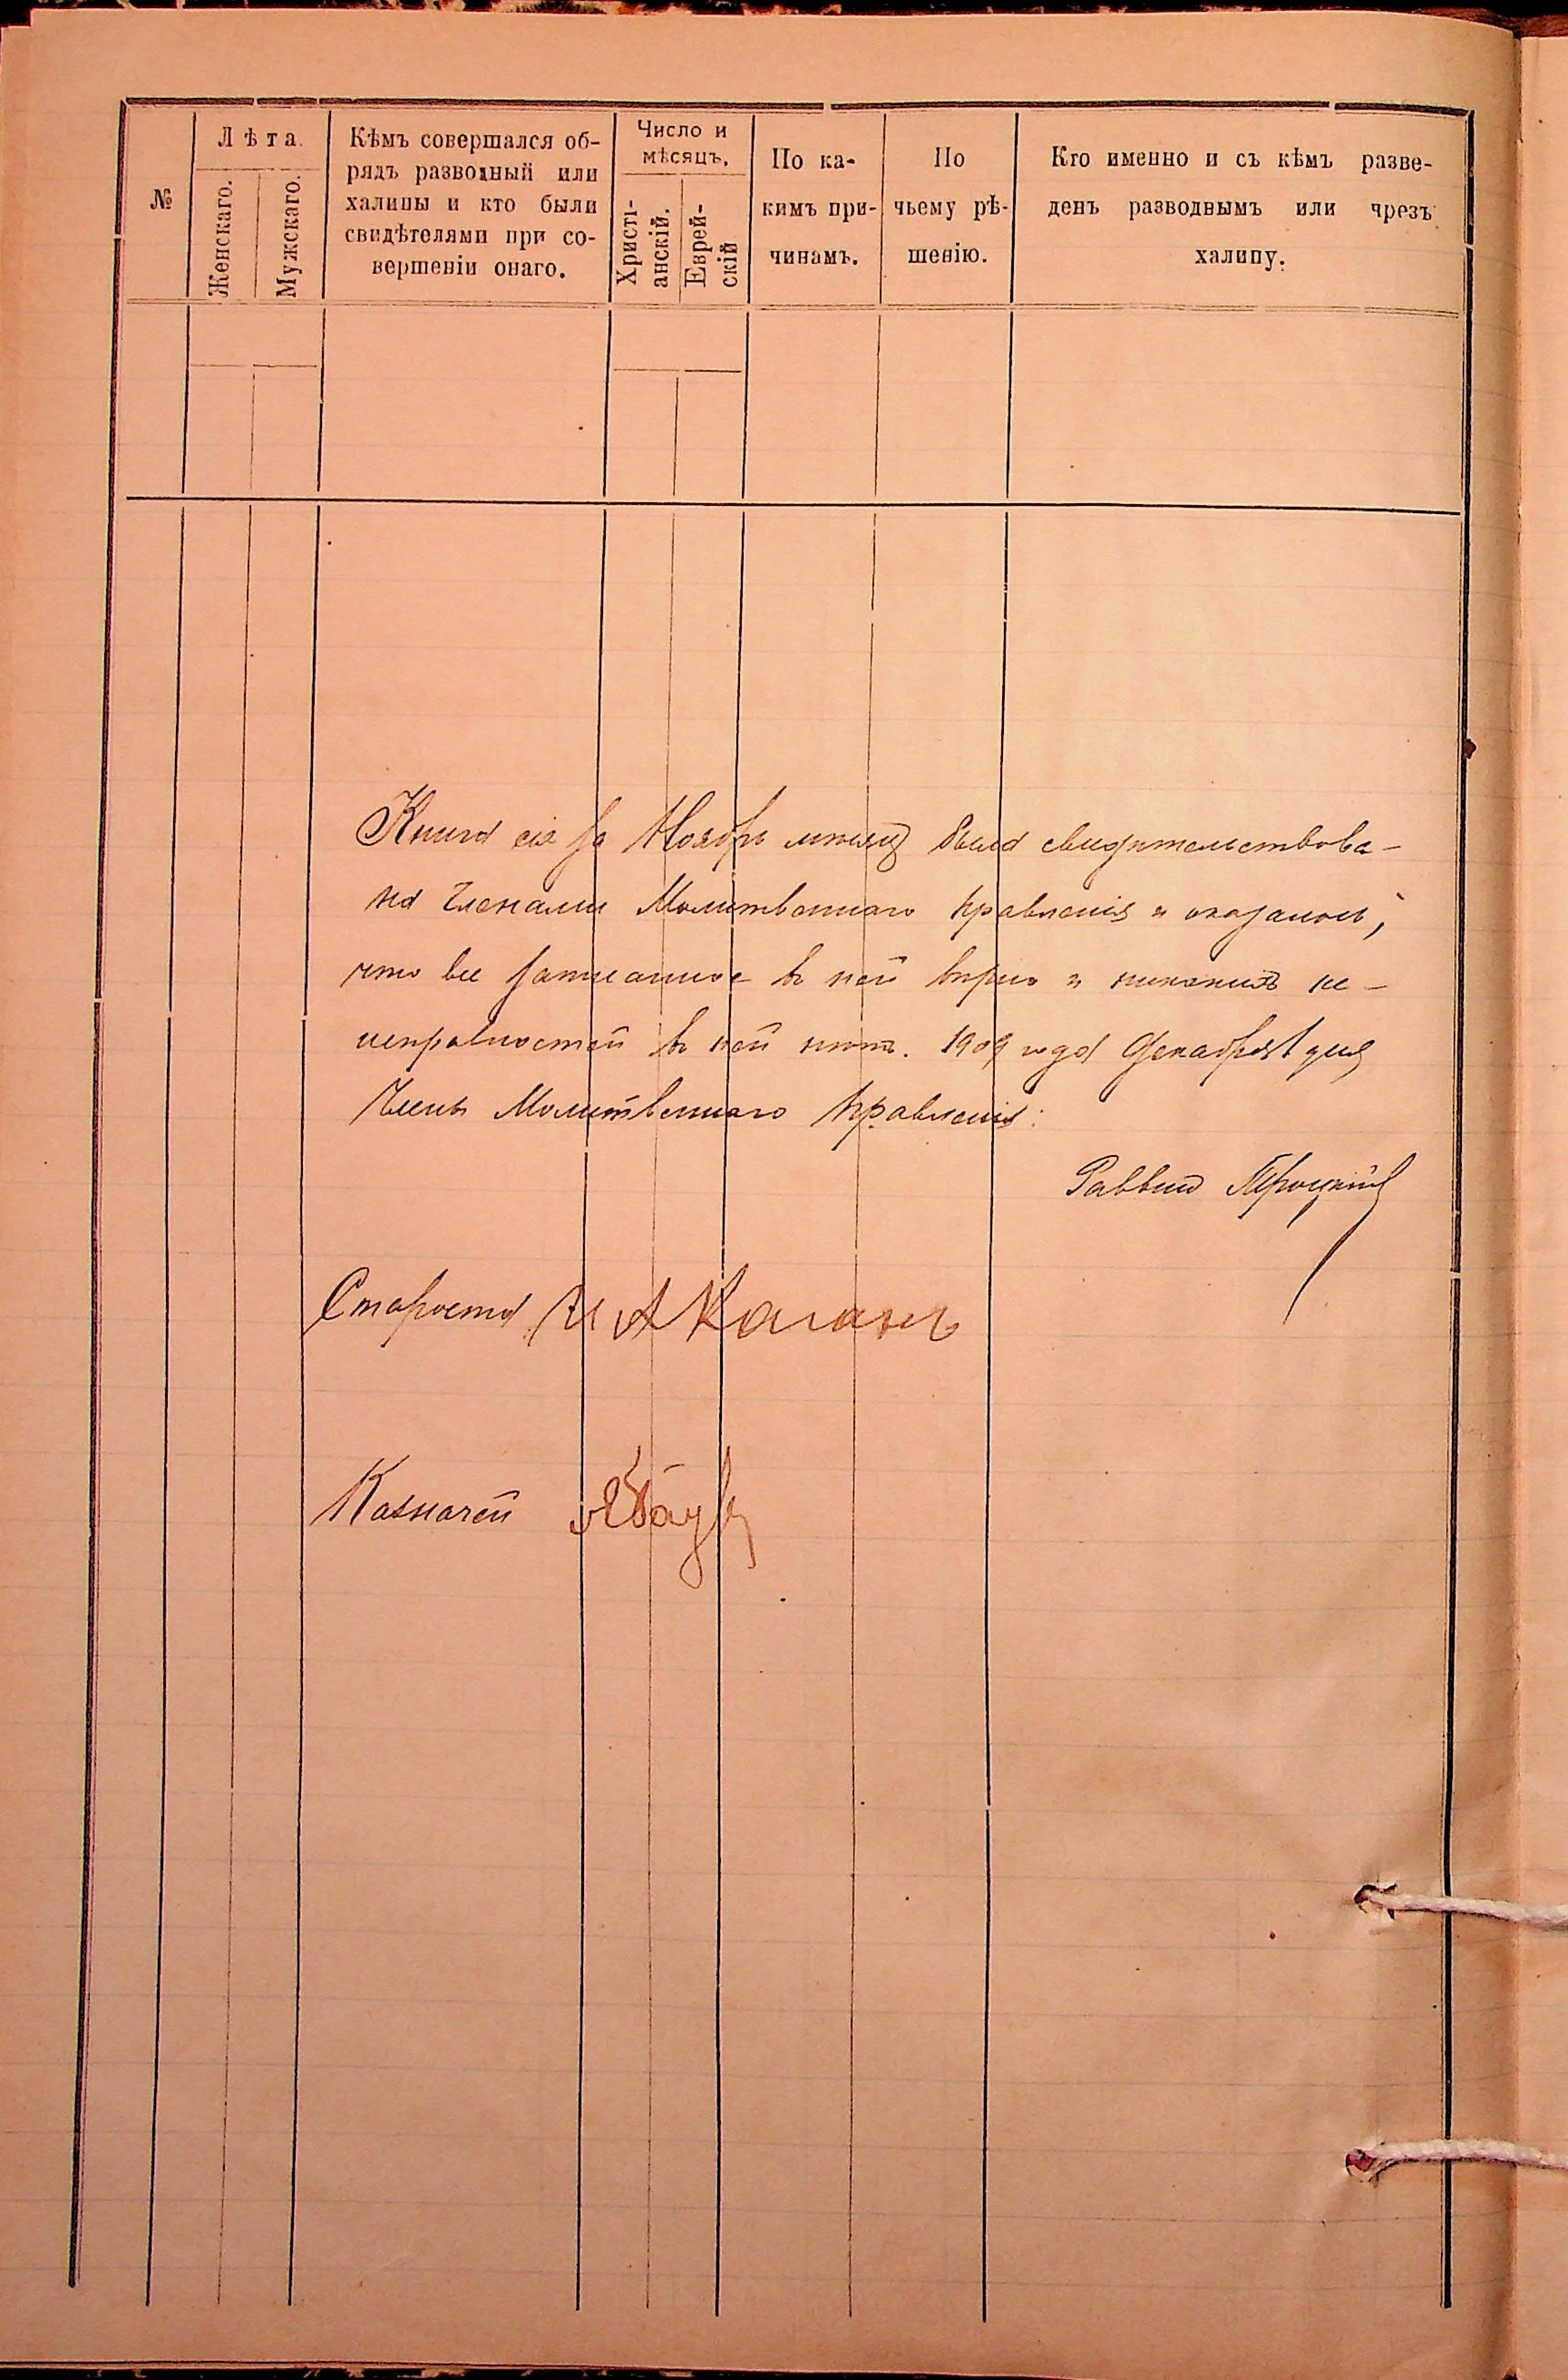 №
Лѣта.
Женскаго.
Мужскаго.
Кѣмъ совершался об-
рядъ разводный или
халицы и кто были
свидѣтелями при со-
вершеніи онаго.
Число и
мѣсяцъ.
Христі-
анскій.
Еврей-
скій
По ка-
кимъ при-
чинамъ.
По
чьему рѣ-
шенію.
Кто именно и съ кѣмъ разве-
денъ разводнымъ или чрезъ
халицу.
Книга сія за Ноябрь мѣсяцъ была свидѣтельствова-
на Членами Молитвеннаго Правленія и оказалось,
что все записанное въ ней вѣрно и никакихъ не-
исправностей въ ней нѣтъ. 1909 года Декабря 1 дня
Члены Молитвеннаго Правленія:
Раввинъ Троцкій
Староста И А Каганъ
Казначей